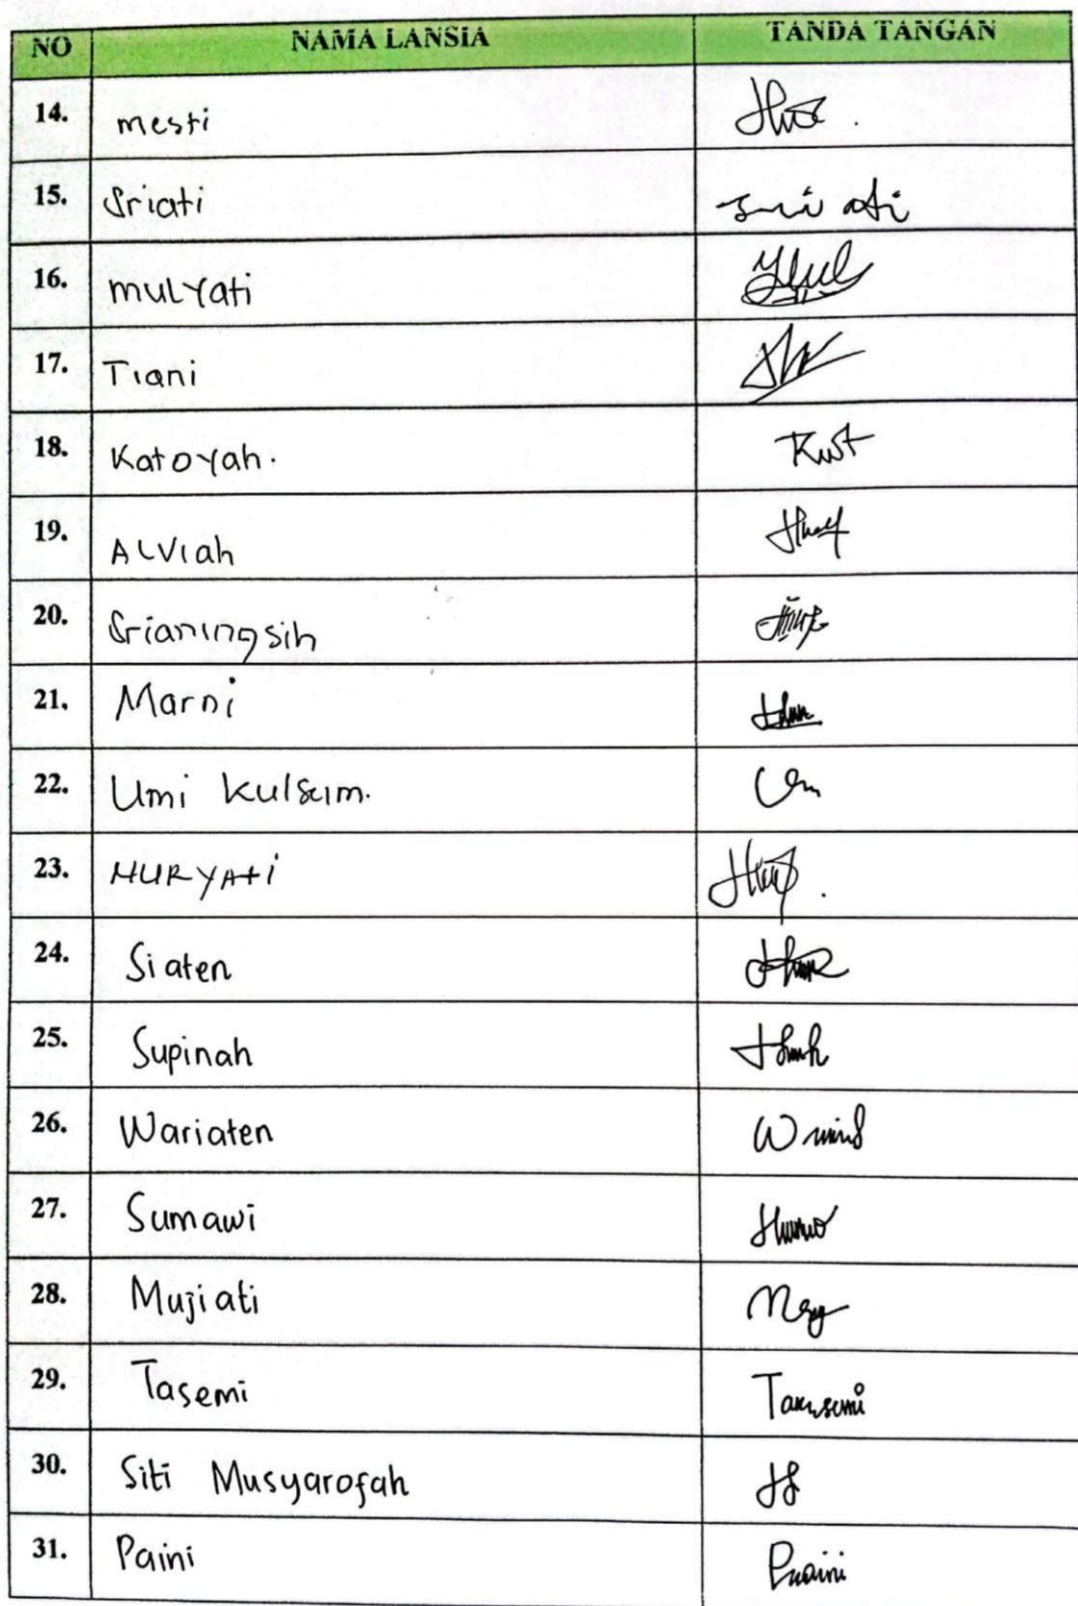 NO NAMA LANSIA TANDA TANGAN
14. mesti
15. Sriati sri ati
16. mulyati
17. Tiani
18. Katoyah.
19. ALViah
20. Srianingsih
21. Marni
22. Umi Kulsum.
23. NURYAti
24. Siaten
25. Supinah
26. Wariaten
27. Sumawi
28. Mujiati
29. Tasemi
30. Siti Musyarofah
31. Paini